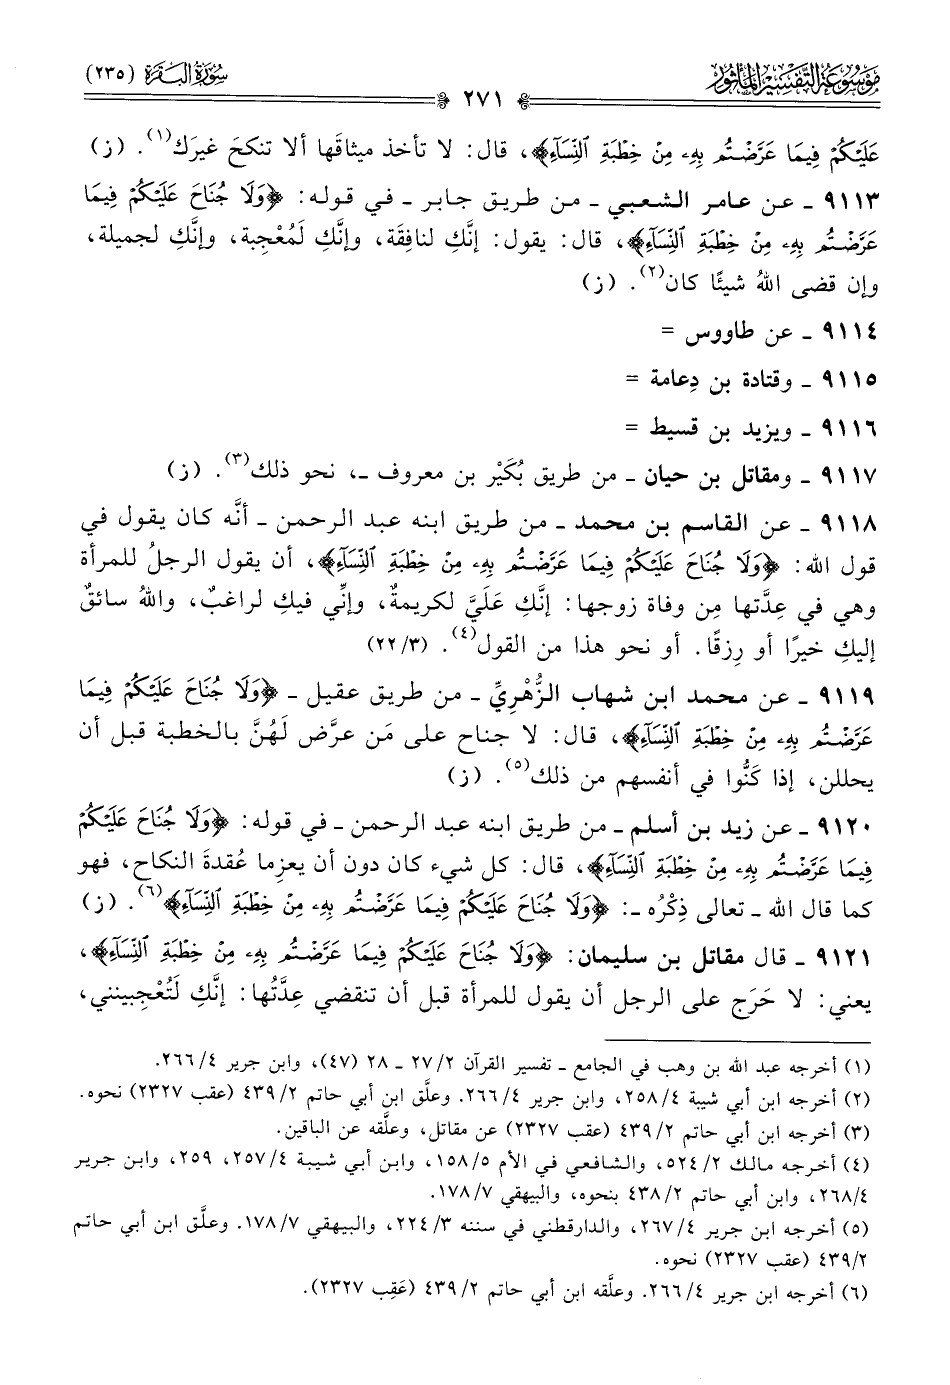 مَوْسُوعَة التَّفْسِير المَأْثُور
سُورَةُ البَقَرَةِ (٢٣٥)
٢٧١
عَلَيْكُمْ فِيمَا عَرَّضْتُم بِهِۦ مِنْ خِطْبَةِ ٱلنِّسَآءِ﴾، قال: لا تأخذ ميثاقَها ألا تنكحَ غيرَك(١). (ز)
٩١١٣ ـ عن عامر الشعبي ـ من طريق جابر ـ في قوله: ﴿وَلَا جُنَاحَ عَلَيْكُمْ فِيمَا
عَرَّضْتُم بِهِۦ مِنْ خِطْبَةِ ٱلنِّسَآءِ﴾، قال: يقول: إنَّكِ لنافِقَة، وإنَّكِ لَمُعْجِبة، وإنَّكِ لجميلة،
وإن قضى اللهُ شيئًا كان(٢). (ز)
٩١١٤ ـ عن طاووس =
٩١١٥ ـ وقتادة بن دِعامة =
٩١١٦ ـ ويزيد بن قسيط =
٩١١٧ ـ ومقاتل بن حيان ـ من طريق بُكَيْر بن معروف ـ، نحو ذلك(٣). (ز)
٩١١٨ ـ عن القاسم بن محمد ـ من طريق ابنه عبد الرحمن ـ أنَّه كان يقول في
قول الله: ﴿وَلَا جُنَاحَ عَلَيْكُمْ فِيمَا عَرَّضْتُم بِهِۦ مِنْ خِطْبَةِ ٱلنِّسَآءِ﴾، أن يقول الرجلُ للمرأة
وهي في عِدَّتها مِن وفاة زوجها: إنَّكِ عَلَيَّ لكريمةٌ، وإنِّي فيكِ لراغبٌ، واللهُ سائقٌ
إليكِ خيرًا أو رِزقًا. أو نحو هذا من القول(٤). (٢٢/٣)
٩١١٩ ـ عن محمد ابن شهاب الزُّهْرِيِّ ـ من طريق عقيل ـ ﴿وَلَا جُنَاحَ عَلَيْكُمْ فِيمَا
عَرَّضْتُم بِهِۦ مِنْ خِطْبَةِ ٱلنِّسَآءِ﴾، قال: لا جناح على مَن عرَّض لَهُنَّ بالخطبة قبل أن
يحللن، إذا كَنُّوا في أنفسهم من ذلك(٥). (ز)
٩١٢٠ ـ عن زيد بن أسلم ـ من طريق ابنه عبد الرحمن ـ في قوله: ﴿وَلَا جُنَاحَ عَلَيْكُمْ
فِيمَا عَرَّضْتُم بِهِۦ مِنْ خِطْبَةِ ٱلنِّسَآءِ﴾، قال: كل شيء كان دون أن يعزِما عُقدةَ النكاح، فهو
كما قال الله ـ تعالى ذِكْرُه ـ: ﴿وَلَا جُنَاحَ عَلَيْكُمْ فِيمَا عَرَّضْتُم بِهِۦ مِنْ خِطْبَةِ ٱلنِّسَآءِ﴾(٦). (ز)
٩١٢١ ـ قال مقاتل بن سليمان: ﴿وَلَا جُنَاحَ عَلَيْكُمْ فِيمَا عَرَّضْتُم بِهِۦ مِنْ خِطْبَةِ ٱلنِّسَآءِ﴾،
يعني: لا حَرَج على الرجل أن يقول للمرأة قبل أن تنقضي عِدَّتُها: إنَّكِ لَتُعْجِبينني،
(١) أخرجه عبد الله بن وهب في الجامع ـ تفسير القرآن ٢٧/٢ ـ ٢٨ (٤٧)، وابن جرير ٢٦٦/٤.
(٢) أخرجه ابن أبي شيبة ٢٥٨/٤، وابن جرير ٢٦٦/٤. وعلَّق ابن أبي حاتم ٤٣٩/٢ (عقب ٢٣٢٧) نحوه.
(٣) أخرجه ابن أبي حاتم ٤٣٩/٢ (عقب ٢٣٢٧) عن مقاتل، وعلَّقه عن الباقين.
(٤) أخرجه مالك ٥٢٤/٢، والشافعي في الأم ١٥٨/٥، وابن أبي شيبة ٢٥٧/٤، ٢٥٩، وابن جرير
٢٦٨/٤، وابن أبي حاتم ٤٣٨/٢ بنحوه، والبيهقي ١٧٨/٧.
(٥) أخرجه ابن جرير ٢٦٧/٤، والدارقطني في سننه ٢٢٤/٣، والبيهقي ١٧٨/٧. وعلَّق ابن أبي حاتم
٤٣٩/٢ (عقب ٢٣٢٧) نحوه.
(٦) أخرجه ابن جرير ٢٦٦/٤. وعلَّقه ابن أبي حاتم ٤٣٩/٢ (عَقِب ٢٣٢٧).